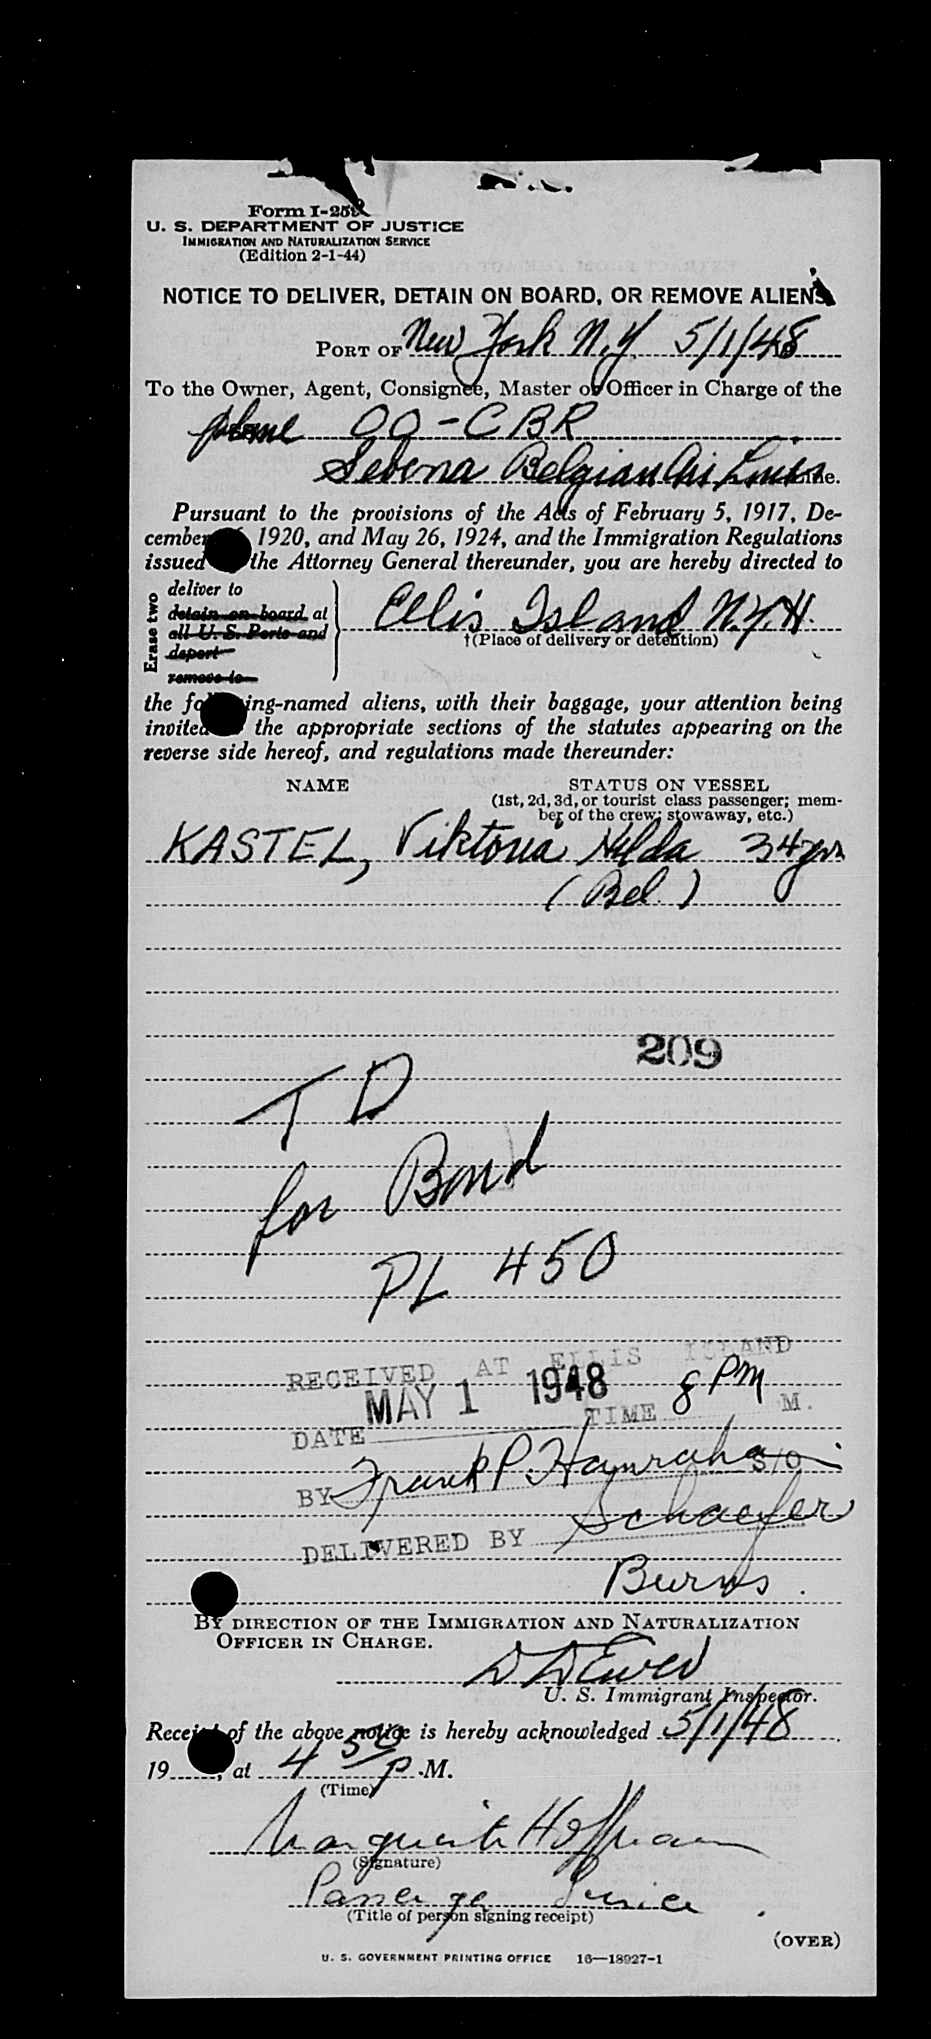 Form I-259
U. S. DEPARTMENT OF JUSTICE
IMMIGRATION AND NATURALIZATION SERVICE
(Edition 2-1-44)
NOTICE TO DELIVER, DETAIN ON BOARD, OR REMOVE ALIENS
PORT OF New York N.Y. 5/1/48
To the Owner, Agent, Consignee, Master or Officer in Charge of the
plane OO-CBR
Sebena Belgian Air Lines Line.
Pursuant to the provisions of the Acts of February 5, 1917, De-
cember 1920, and May 26, 1924, and the Immigration Regulations
issued the Attorney General thereunder, you are hereby directed to
Erase two
deliver to
detain on board at
all U. S. Ports and
deport
remove to
Ellis Island N.Y.H.
†(Place of delivery or detention)
the following-named aliens, with their baggage, your attention being
invited the appropriate sections of the statutes appearing on the
reverse side hereof, and regulations made thereunder:
NAME STATUS ON VESSEL
(1st, 2d, 3d, or tourist class passenger; mem-
ber of the crew; stowaway, etc.)
KASTEL, Viktoria Hilda 34 yrs
(Bel.)
209
TD
for Bond
PL 450
RECEIVED AT ELLIS ISLAND
MAY 1 1948 8 PM
DATE TIME M.
BY Frank P. Hanrahan S/O
DELIVERED BY Schaefer
Burns.
BY DIRECTION OF THE IMMIGRATION AND NATURALIZATION
OFFICER IN CHARGE.
U. S. Immigrant Inspector.
Receipt of the above notice is hereby acknowledged 5/1/48
19 , at 4 50 P .M.
(Time)
Marguerite Hoffmann
(Signature)
Passenger Service
(Title of person signing receipt)
(OVER)
U. S. GOVERNMENT PRINTING OFFICE 16—18927-1